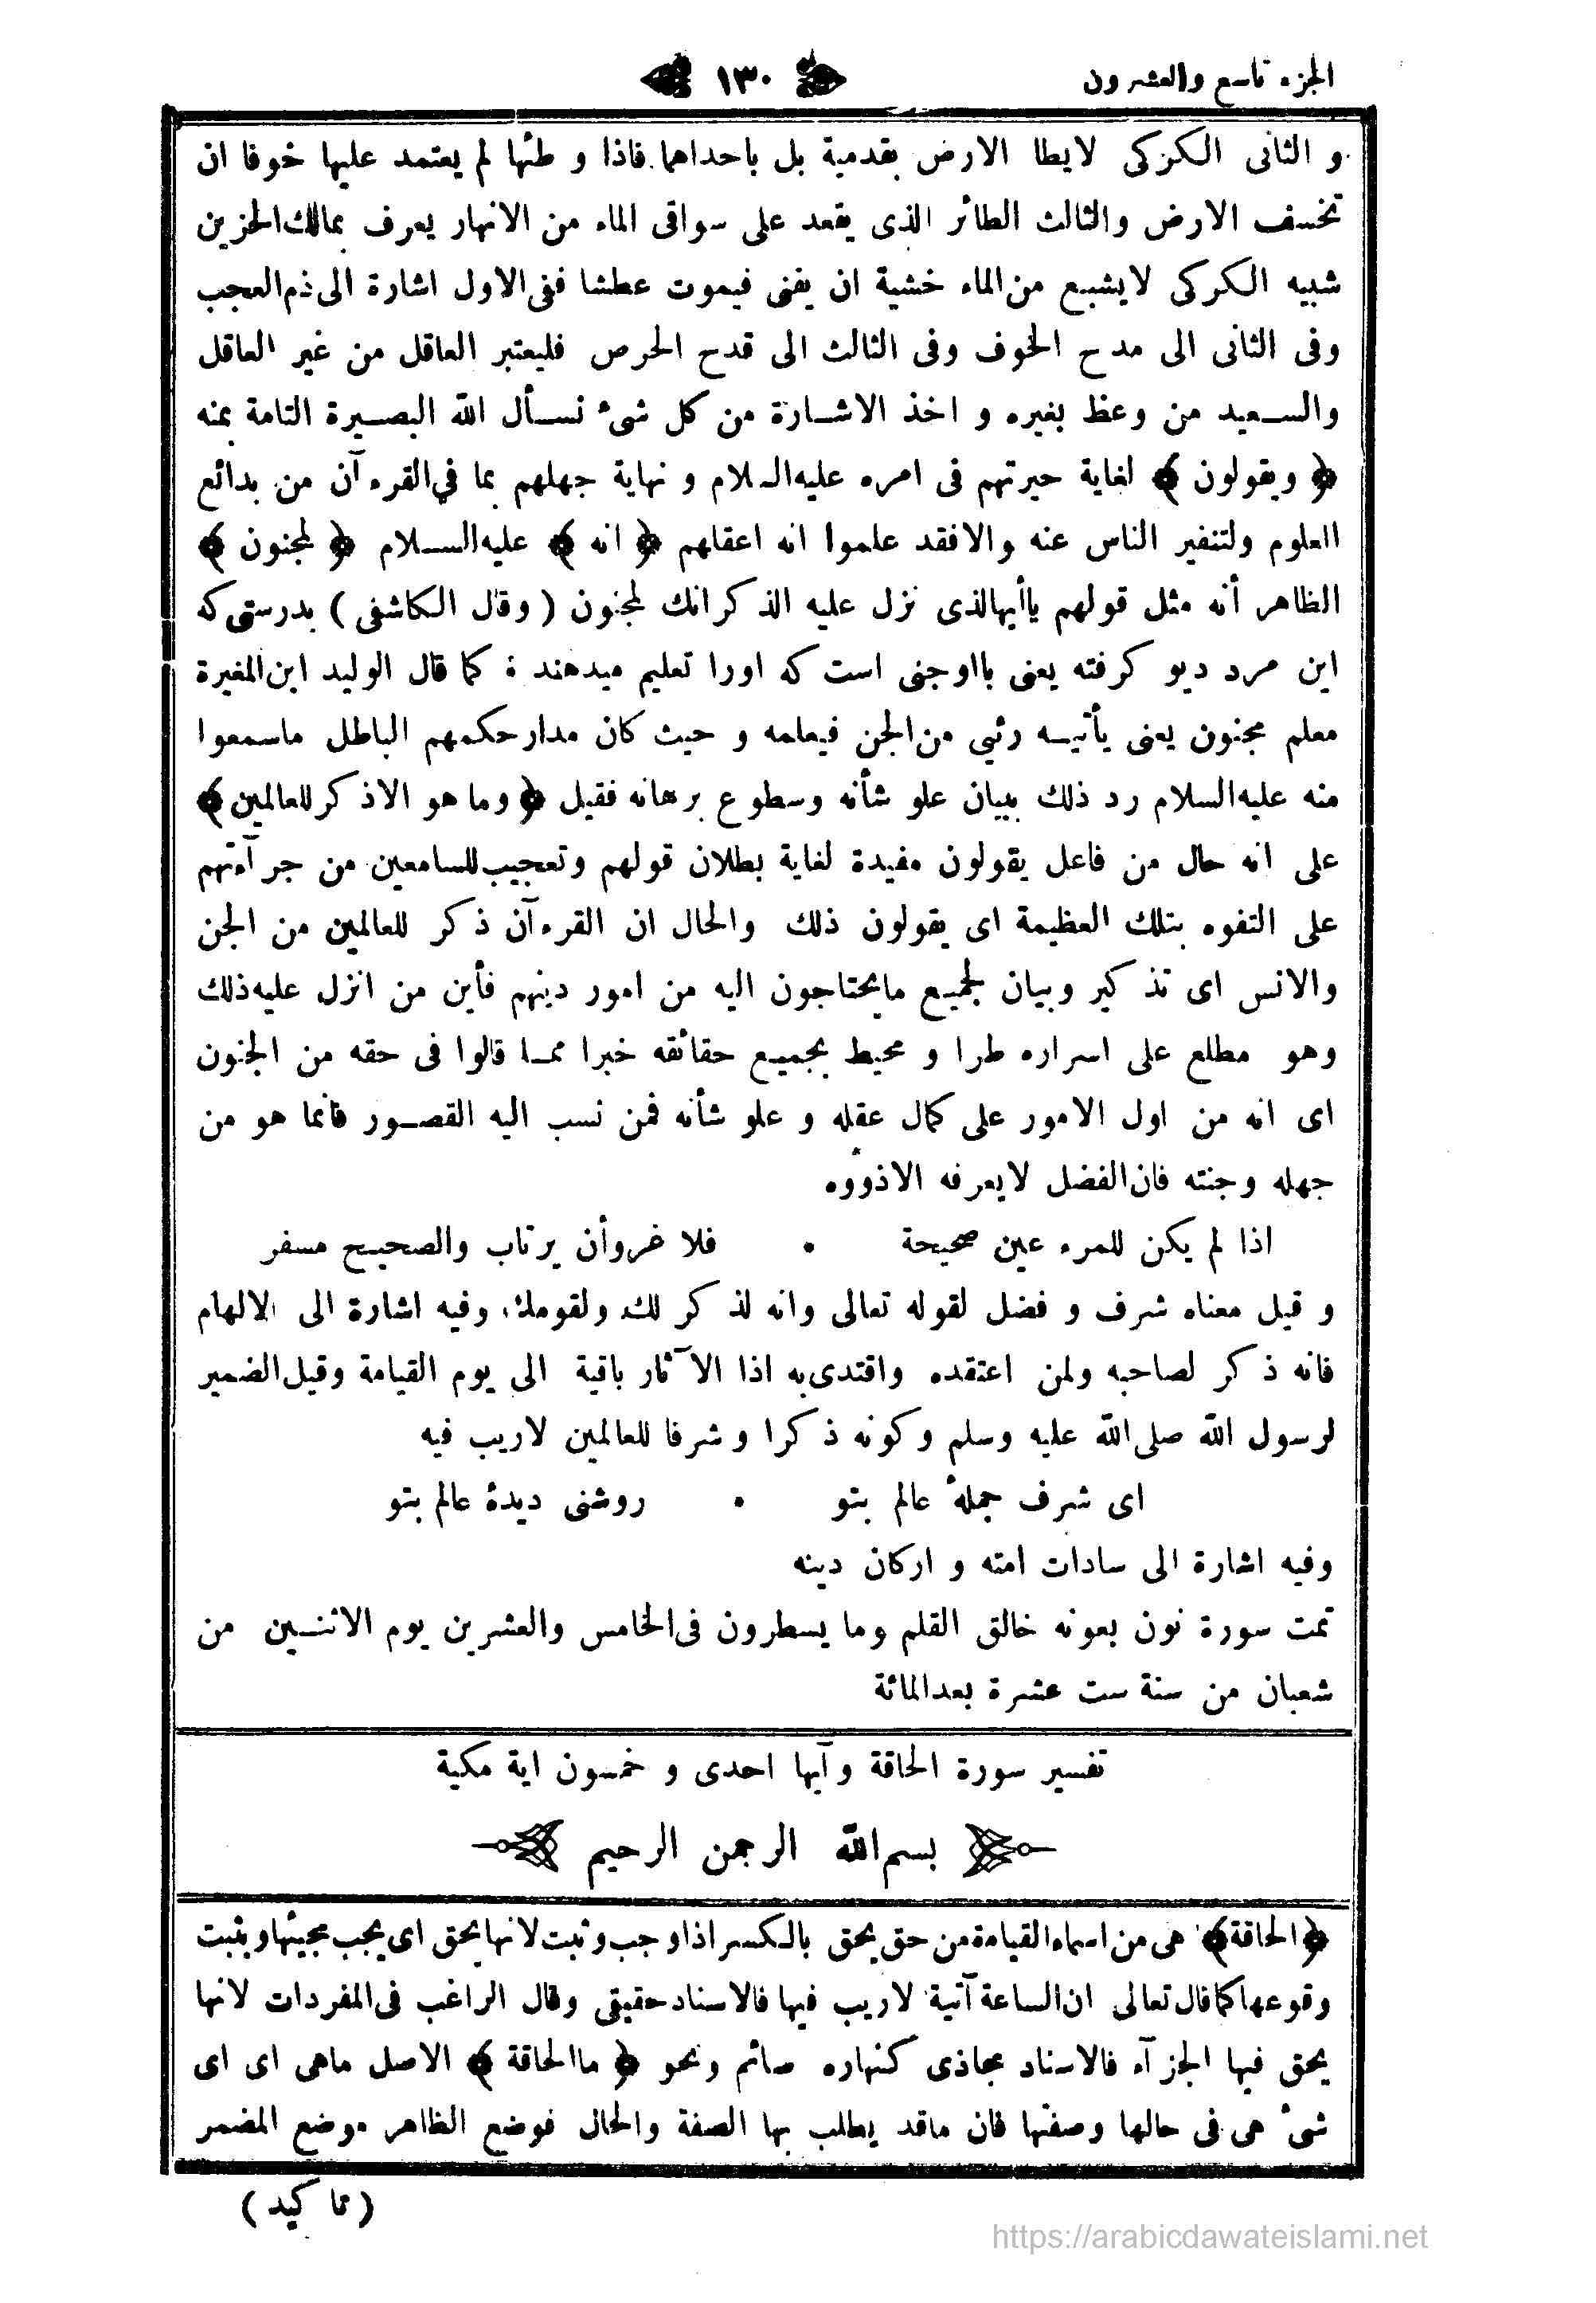 الجزء تاسع والعشرون ١٣٠
و الثانى الكركى لايطا الارض بقدمية بل باحداهما فاذا و طئها لم يعتمد عليها خوفا ان
تخسف الارض والثالث الطائر الذى يقعد على سواقى الماء من الانهار يعرف بمالك الحزين
شبيه الكركى لايشبع من الماء خشية ان يفنى فيموت عطشا ففى الاول اشارة الى ذم العجب
وفى الثانى الى مدح الخوف وفى الثالث الى قدح الحرص فليعتبر العاقل من غير العاقل
والسعيد من وعظ بغيره و اخذ الاشارة من كل شئ نسأل الله البصيرة التامة بمنه
﴿ ويقولون ﴾ لغاية حيرتهم فى امره عليه السلام و نهاية جهلهم بما فى القرءآن من بدائع
العلوم ولتنفير الناس عنه والافقد علموا انه اعقلهم ﴿ انه ﴾ عليه السلام ﴿ لمجنون ﴾
الظاهر أنه مثل قولهم ياأيهاالذى نزل عليه الذكر انك لمجنون ( وقال الكاشفى ) بدرستى كه
اين مرد ديو كرفته يعنى بااوجنى است كه اورا تعليم ميدهند ة كما قال الوليد ابن المغيرة
معلم مجنون يعنى يأتيه رئى من الجن فيعلمه و حيث كان مدار حكمهم الباطل ماسمعوا
منه عليه السلام رد ذلك ببيان علو شأنه وسطوع برهانه فقيل ﴿ وما هو الاذكر للعالمين ﴾
على انه حال من فاعل يقولون مفيدة لغاية بطلان قولهم وتعجيب للسامعين من جرآءتهم
على التفوه بتلك العظيمة اى يقولون ذلك والحال ان القرءآن ذكر للعالمين من الجن
والانس اى تذكير وبيان لجميع مايحتاجون اليه من امور دينهم فأين من انزل عليه ذلك
وهو مطلع على اسراره طرا و محيط بجميع حقائقه خبرا مما قالوا فى حقه من الجنون
اى انه من اول الامور على كمال عقله و علو شأنه فمن نسب اليه القصور فانما هو من
جهله وجنته فان الفضل لايعرفه الاذووه
اذا لم يكن للمرء عين صحيحة • فلا غروأن يرتاب والصحيح مسفر
و قيل معناه شرف و فضل لقوله تعالى وانه لذكر لك ولقومك وفيه اشارة الى الالهام
فانه ذكر لصاحبه ولمن اعتقده واقتدى به اذا الآثار باقية الى يوم القيامة وقيل الضمير
لرسول الله صلى الله عليه وسلم وكونه ذكرا و شرفا للعالمين لاريب فيه
اى شرف جملهٔ عالم بتو • روشنى ديدهٔ عالم بتو
وفيه اشارة الى سادات امته و اركان دينه
تمت سورة نون بعونه خالق القلم وما يسطرون فى الخامس والعشرين يوم الاثنين من
شعبان من سنة ست عشرة بعدالمائة
تفسير سورة الحاقة وآيها احدى و خمسون اية مكية
بسم الله الرحمن الرحيم
﴿ الحاقة ﴾ هى من اسماء القيامة من حق يحق بالكسر اذا وجب وثبت لانها يحق اى يجب مجيئها ويثبت
وقوعها كما قال تعالى ان الساعة آتية لاريب فيها فالاسناد حقيقى وقال الراغب فى المفردات لانها
يحق فيها الجزآء فالاسناد مجاذى كنهاره صائم ونحو ﴿ ماالحاقة ﴾ الاصل ماهى اى اى
شئ هى فى حالها وصفتها فان ماقد يطلب بها الصفة والحال فوضع الظاهر موضع المضمر
( تاكيد )
https://arabicdawateislami.net